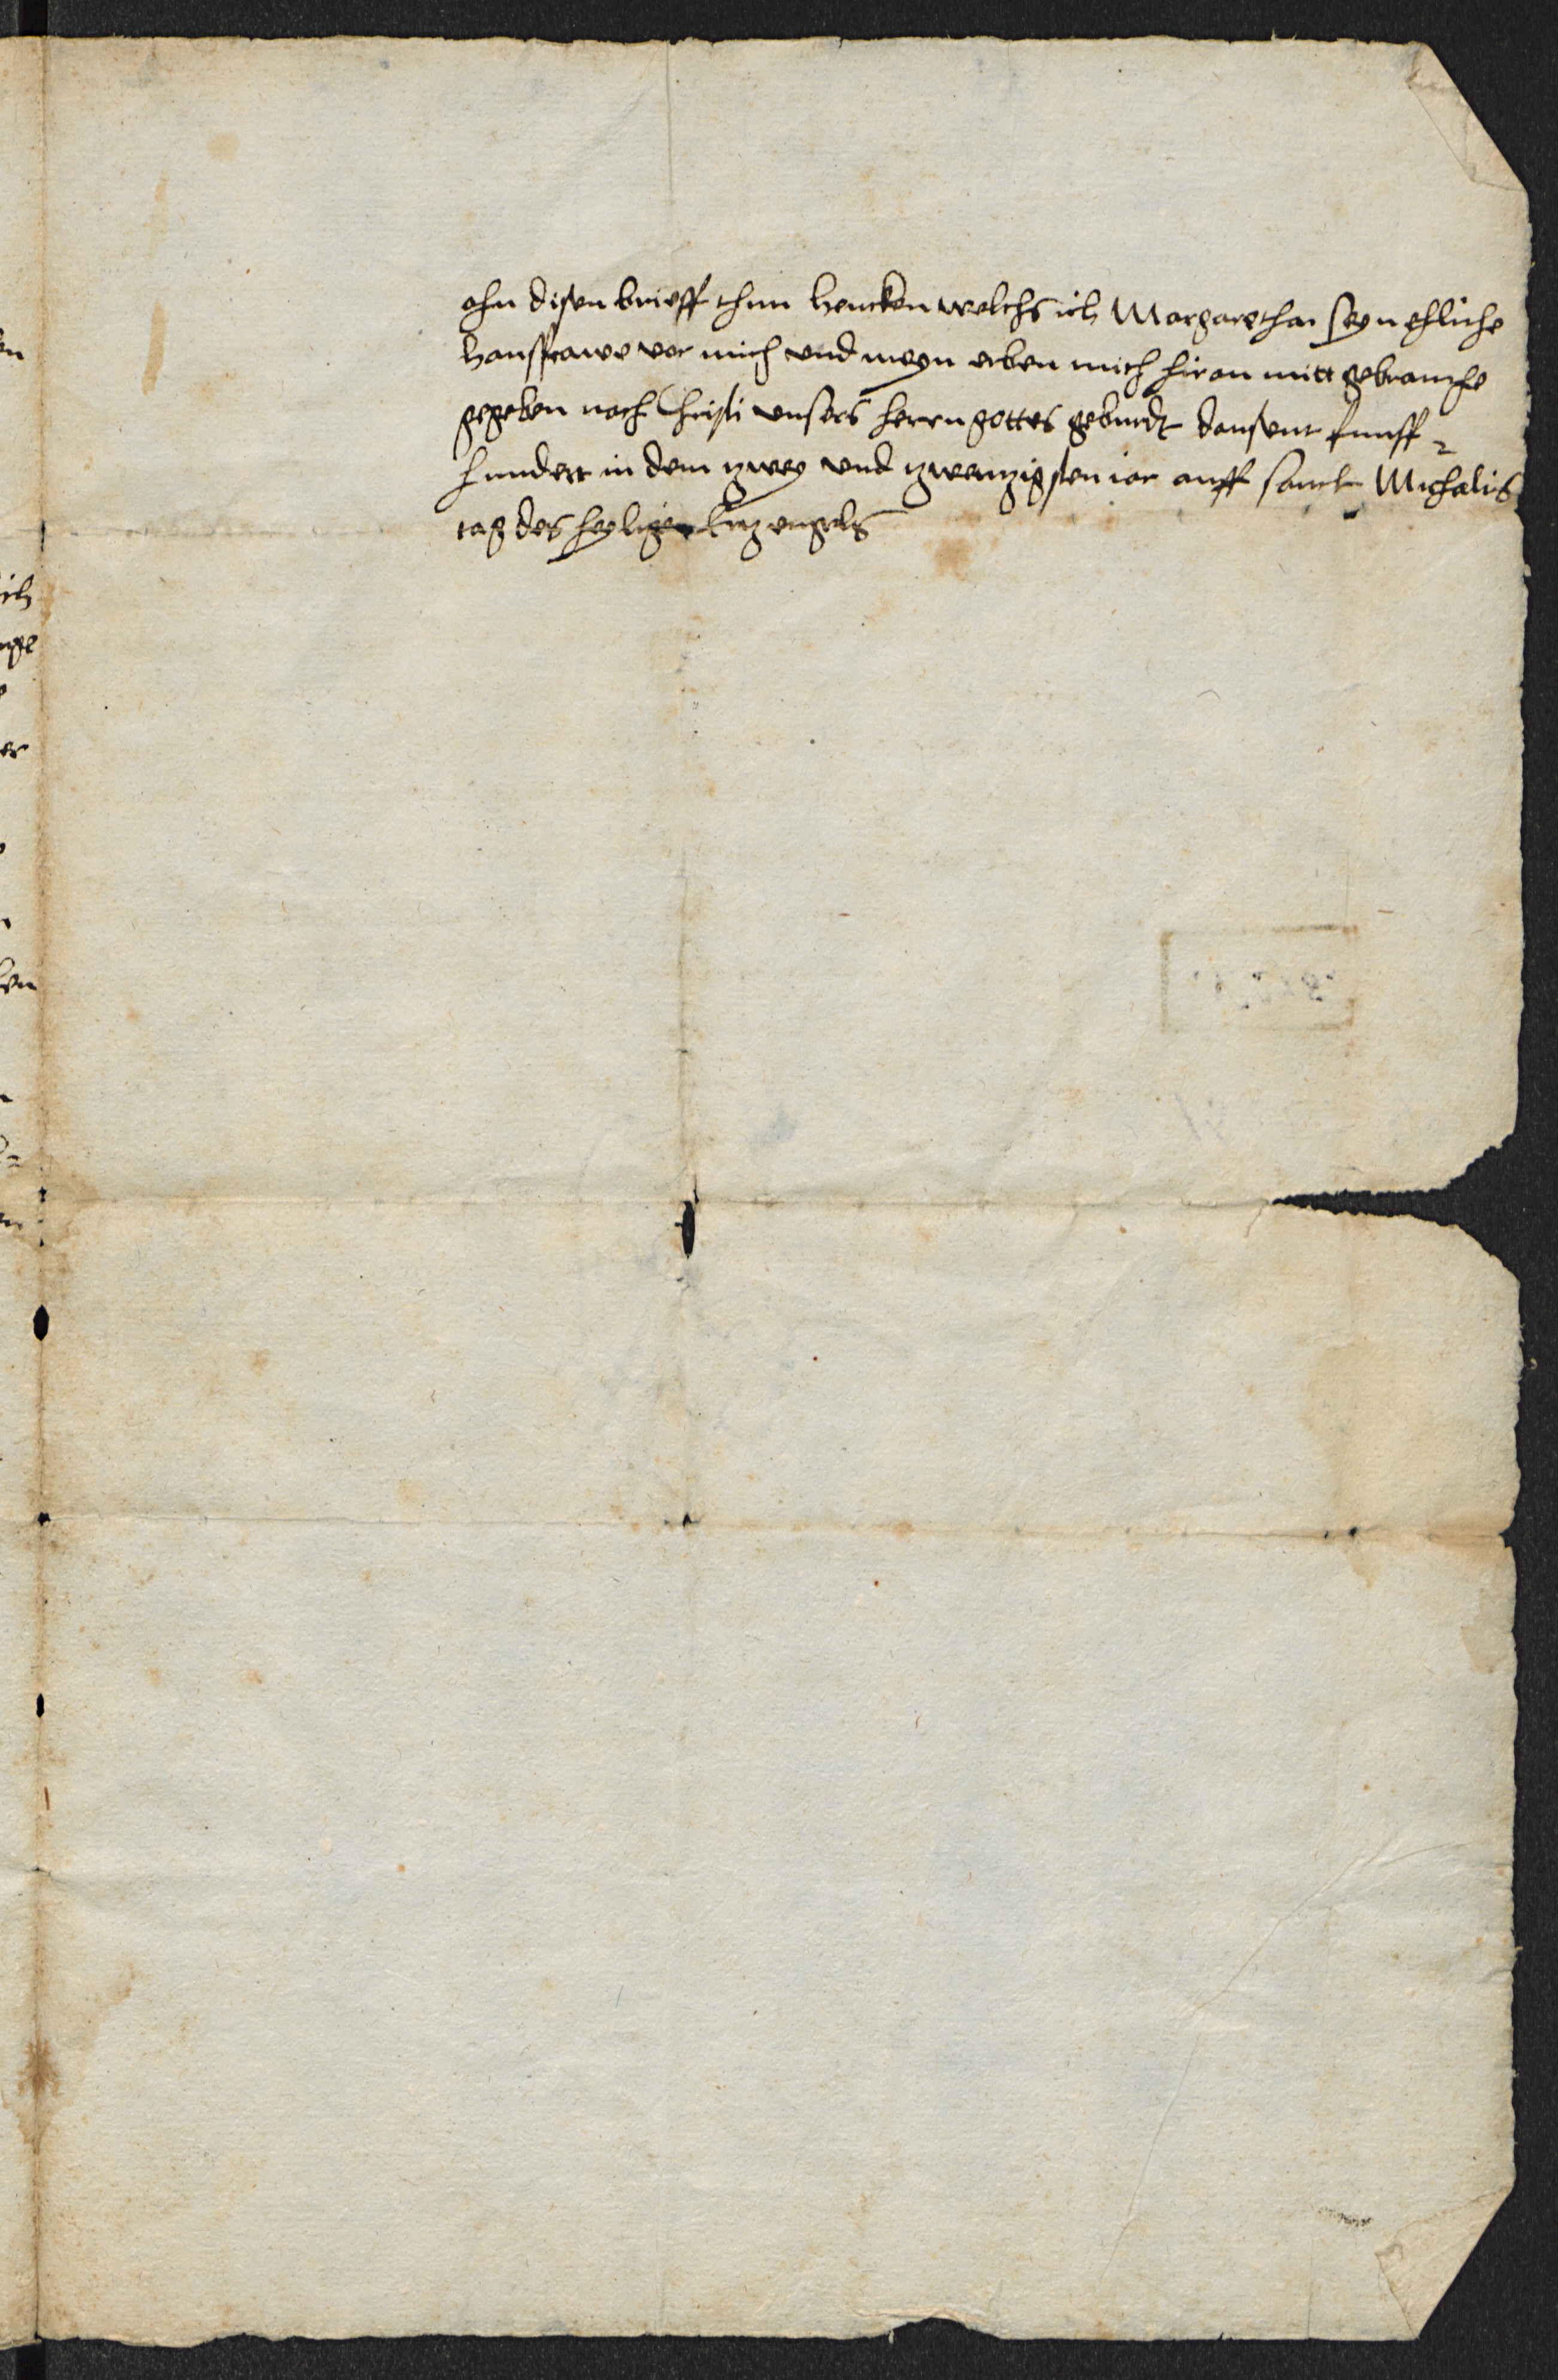 ahn disen brieff thun hencken welchs ich Margaretha seyn ehliche
hausfrawe vor mich und meyn erben mich hiran mitt gebrauche
gegeben nach Christi unsers herrn gottes geburdt dausent funff
hundert in dem zwey und zwenzigsten iar auff sanct Michalis
tag des heyligen Erzengels